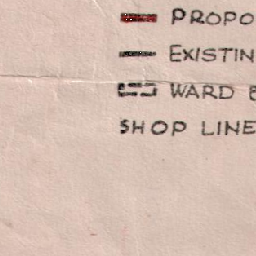 PROPO
EXISTIN
WARD
SHOP LINE